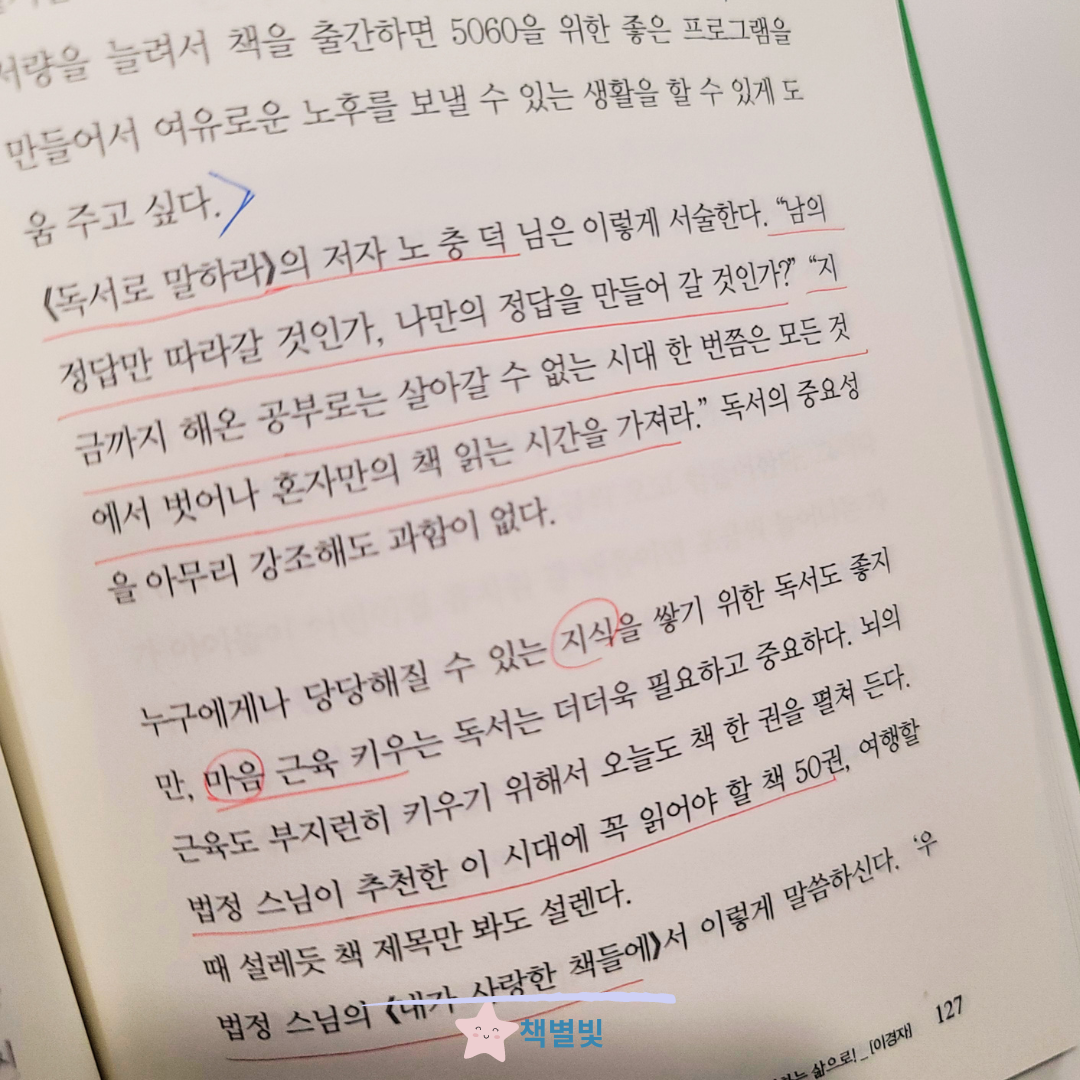 서량을 늘려서 책을 출간하면 5060을 위한 좋은 프로그램을
만들어서 여유로운 노후를 보낼 수 있는 생활을 할 수 있게 도
움 주고 싶다.
《독서로 말하라》의 저자 노 충 덕 님은 이렇게 서술한다. “남의
정답만 따라갈 것인가, 나만의 정답을 만들어 갈 것인가?” “지
금까지 해온 공부로는 살아갈 수 없는 시대 한 번쯤은 모든 것
에서 벗어나 혼자만의 책 읽는 시간을 가져라.” 독서의 중요성
을 아무리 강조해도 과함이 없다.
누구에게나 당당해질 수 있는 지식을 쌓기 위한 독서도 좋지
만, 마음 근육 키우는 독서는 더더욱 필요하고 중요하다. 뇌의
근육도 부지런히 키우기 위해서 오늘도 책 한 권을 펼쳐 든다.
법정 스님이 추천한 이 시대에 꼭 읽어야 할 책 50권, 여행할
때 설레듯 책 제목만 봐도 설렌다.
법정 스님의 《내가 사랑한 책들에》서 이렇게 말씀하신다. ‘우
삶으로!_[이경재] 127
책별빛